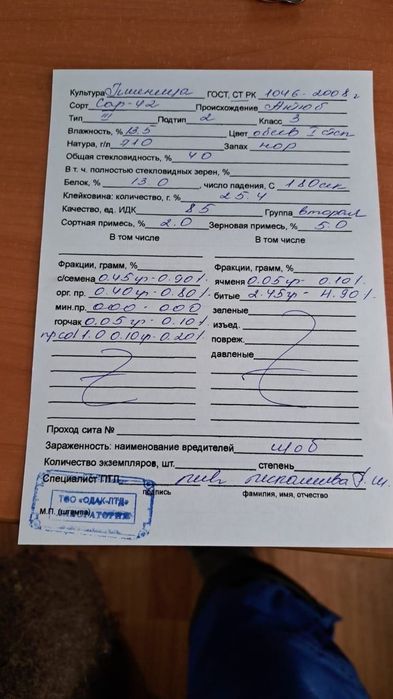 Культура Пшеница ГОСТ, СТ РК 1046-2008г
Сорт Сар-42 Происхождение Актюб
Тип III Подтип 2 Класс 3
Влажность, % 13.5 Цвет обесв I степ
Натура, г/л 710 Запах нор
Общая стекловидность, % 40
В т. ч. полностью стекловидных зерен, %
Белок, % 13.0, число падения, С 180сек
Клейковина: количество, г. % 25.4
Качество, ед. ИДК 85 Группа вторая
Сортная примесь, % 2.0 Зерновая примесь, % 5.0
В том числе В том числе
Фракции, грамм, % Фракции, грамм, %
с/семена 0.45гр-0.90% ячменя 0.05гр-0.10%
орг. пр. 0.40гр-0.80% битые 2.45гр-4.90%
мин.пр. 000-000 зеленые
горчак 0.05гр-0.10% изъед.
0.10гр-0.20% повреж.
давленые
Проход сита №
Зараженность: наименование вредителей
Количество экземпляров, шт. степень
Специалист ПТЛ
подпись фамилия, имя, отчество
ТОО «ОДАК-ЛТД»
ЛАБОРАТОРИЯ
М.П. (штампа)